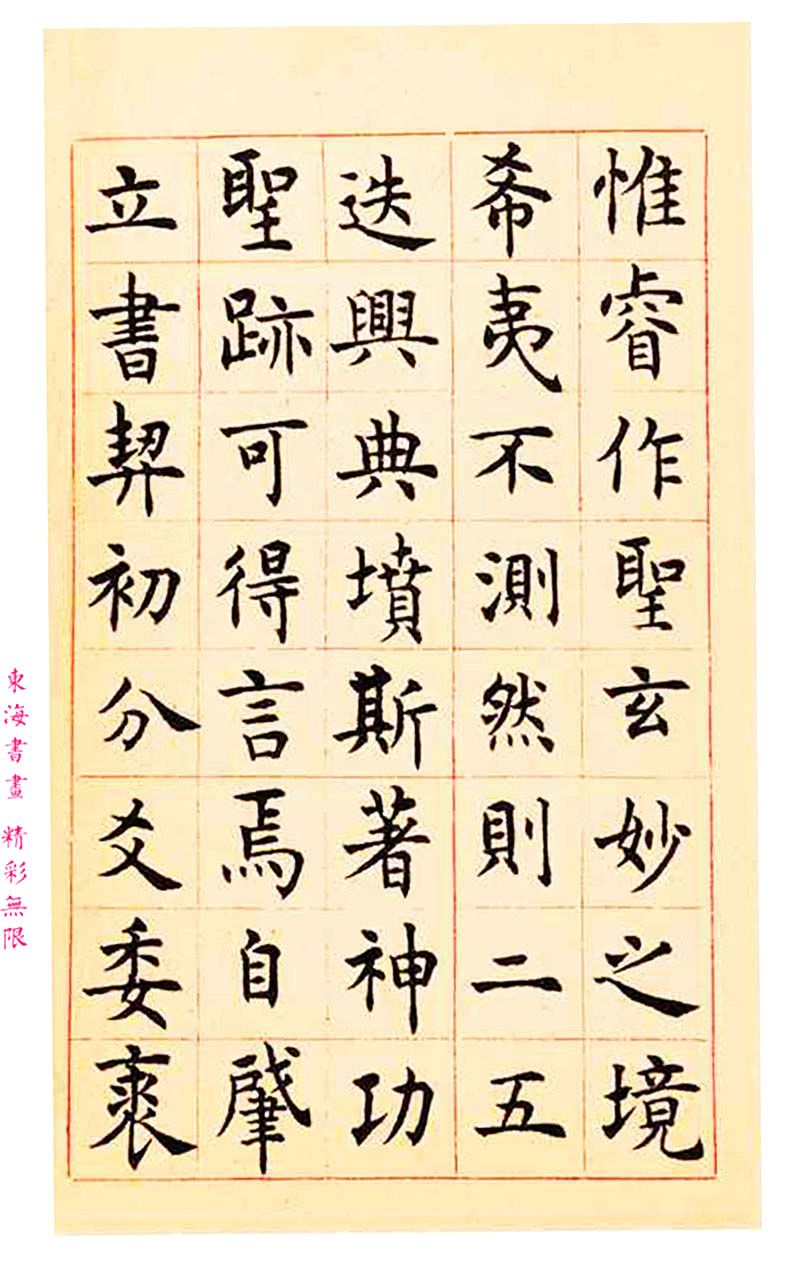 惟睿作聖玄妙之境
希夷不測然則二五
迭興典墳斯著神功
聖跡可得言焉自肇
立書契初分爻委裘
東海書畫 精彩無限